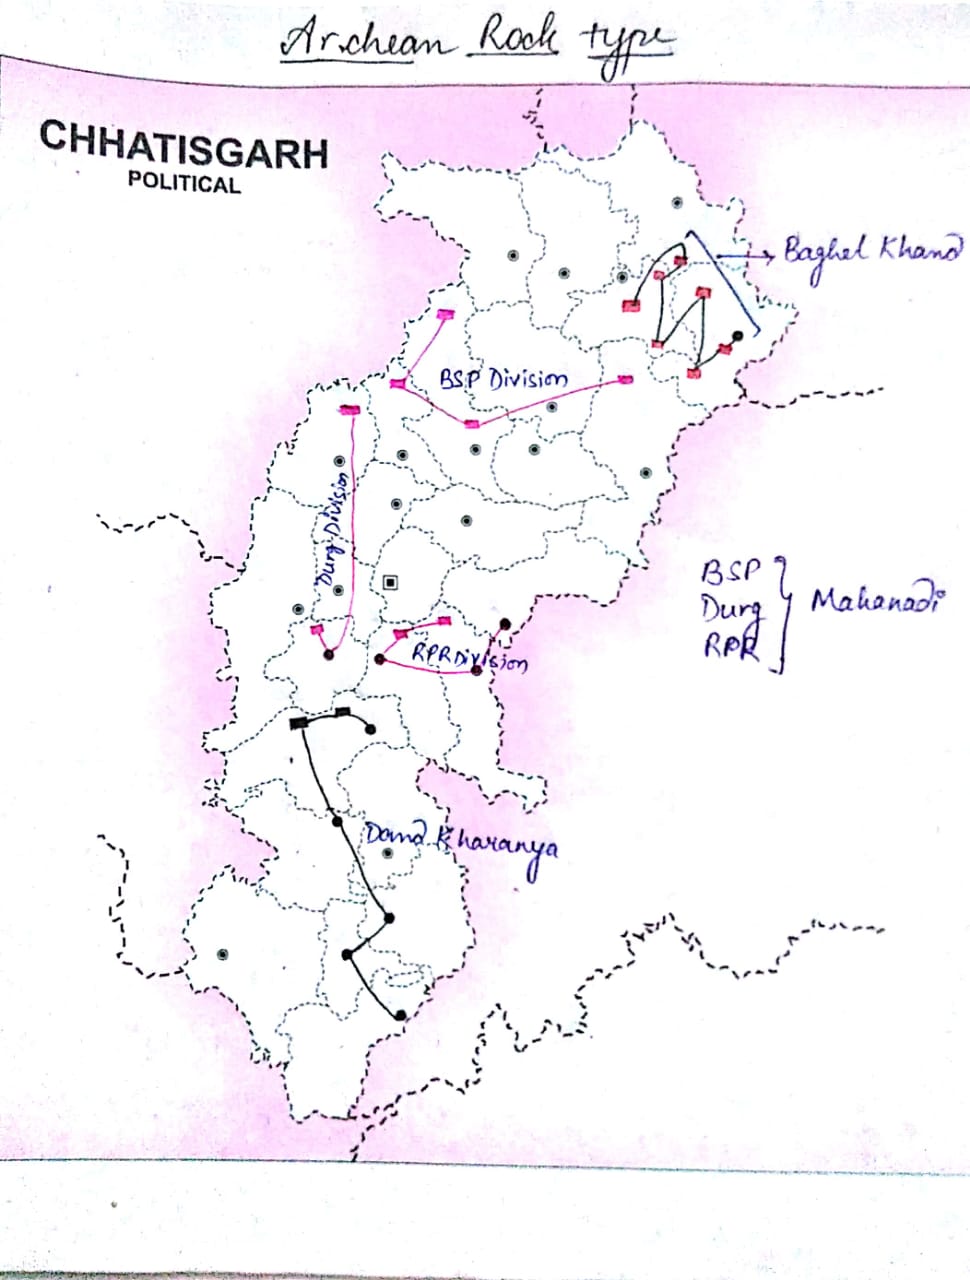 Archean Rock type
CHHATISGARH
POLITICAL
Baghel Khand
BSP Division
Durg Division
BSP
Durg
RPR
Mahanadi
RPR Division
Dand Kharanya